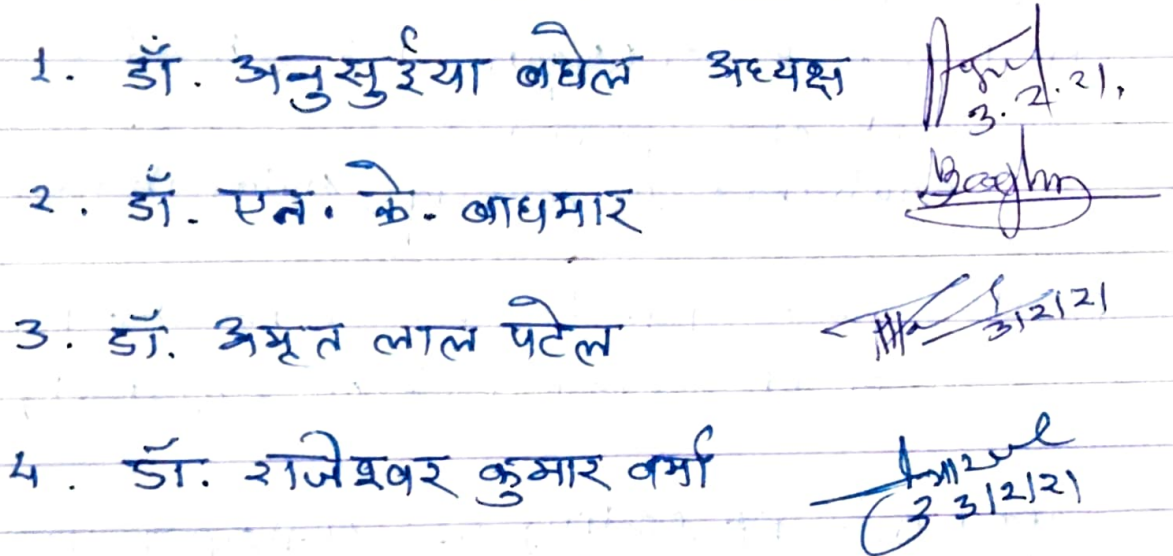 1. डॉ. अनुसुईया बघेल अध्यक्ष
3.2.21.
2. डॉ. एन. के. बाघमार
3. डॉ. अमृत लाल पटेल 3/2/21
4. डॉ. राजेश्वर कुमार वर्मा
3/2/21